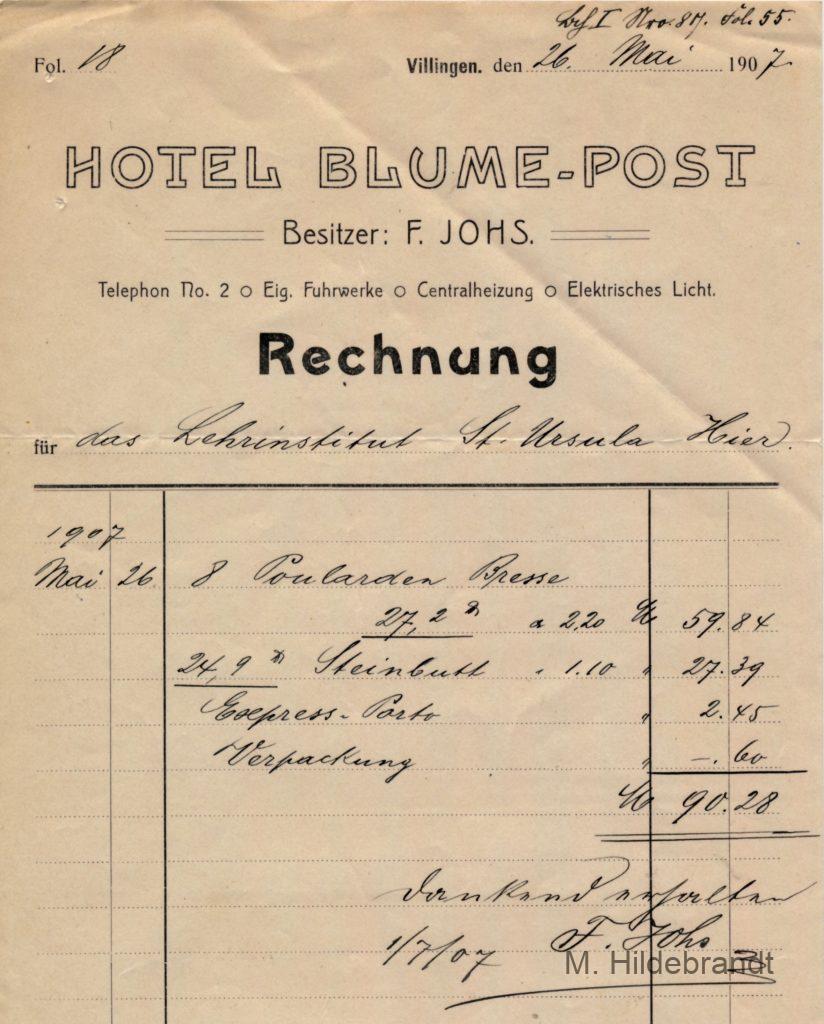 I Nro. 87. Fol. 55.
Fol. 18 Villingen. den 26. Mai 1907.
HOTEL BLUME-POST
Besitzer: F. JOHS.
Telephon No. 2 o Eig. Fuhrwerke o Centralheizung o Elektrisches Licht.
Rechnung
für das Lehrinstitut St. Ursula Hier.
1907
Mai 26 8 Poularden Bresse
27,2 ℔ a 2.20 ℳ 59.84
24,9 ℔ Steinbutt " 1.10 " 27.39
Express-Porto " 2.45
Verpackung " -.60
ℳ 90.28
Dankend erhalten
1/7/07 F. Johs
M. Hildebrandt